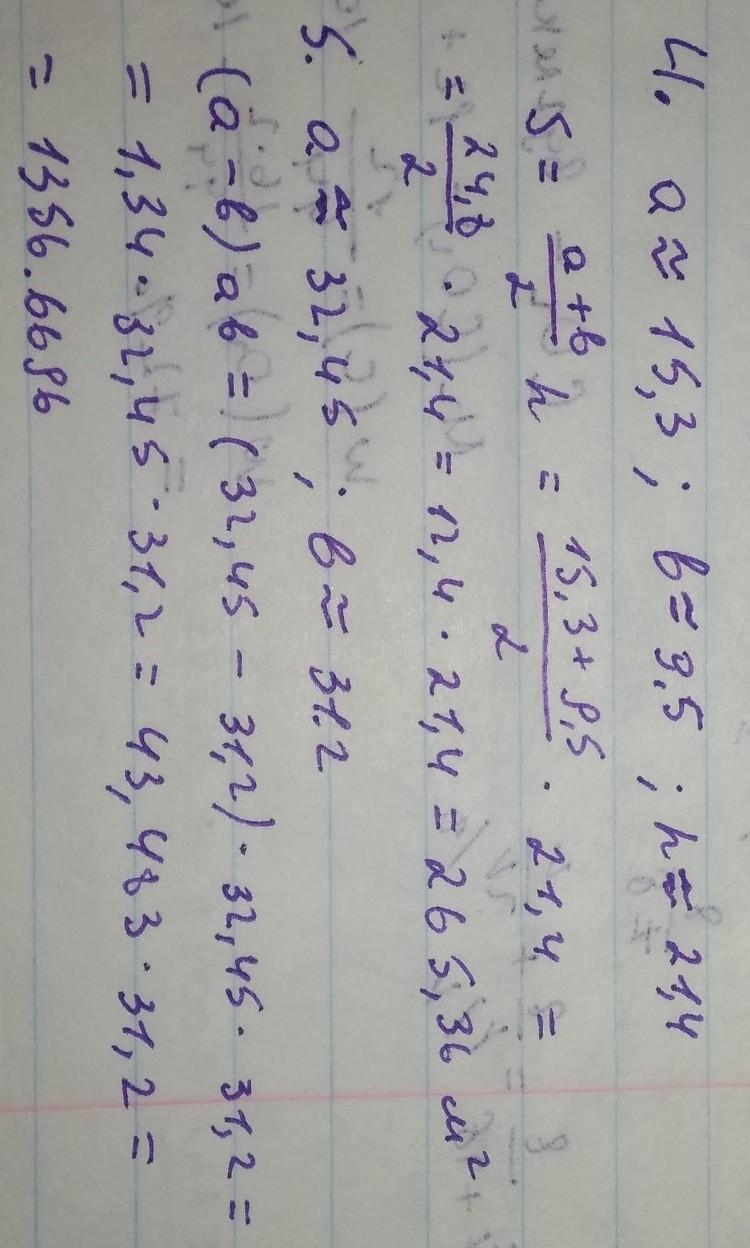 4. a ≈ 15,3 ; b ≈ 9,5 ; h ≈ 21,4
S = a+b/2 h = 15,3+9,5/2 · 21,4 =
= 24,8/2 · 21,4 = 12,4 · 21,4 = 265,36 м²
5. a ≈ 32,45 ; b ≈ 31,2
(a-b) ab = (32,45 - 31,2) · 32,45 · 31,2 =
= 1,34 · 32,45 · 31,2 = 43,483 · 31,2 =
= 1356.6696